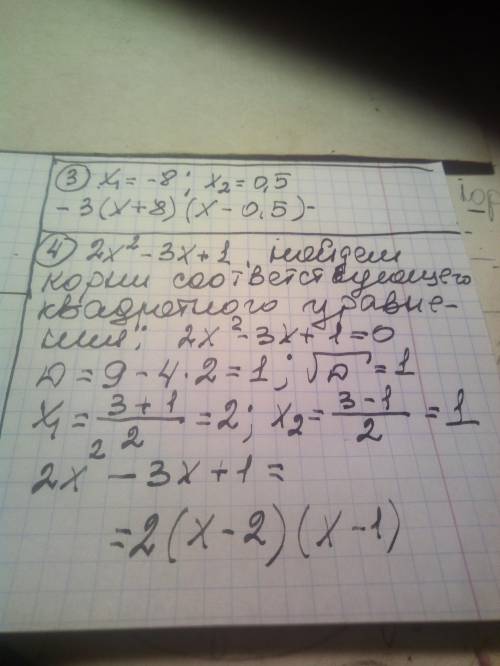 ③ x₁ = -8; x₂ = 0,5
- 3(x+8)(x - 0,5) -
④ 2x² - 3x + 1. найдем
корни соответствующего
квадратного уравне-
ния; 2x² - 3x + 1 = 0
D = 9 - 4·2 = 1; √D = 1
x₁ = (3+1)/2 = 2; x₂ = (3-1)/2 = 1
2x² - 3x + 1 =
= 2(x - 2)(x - 1)